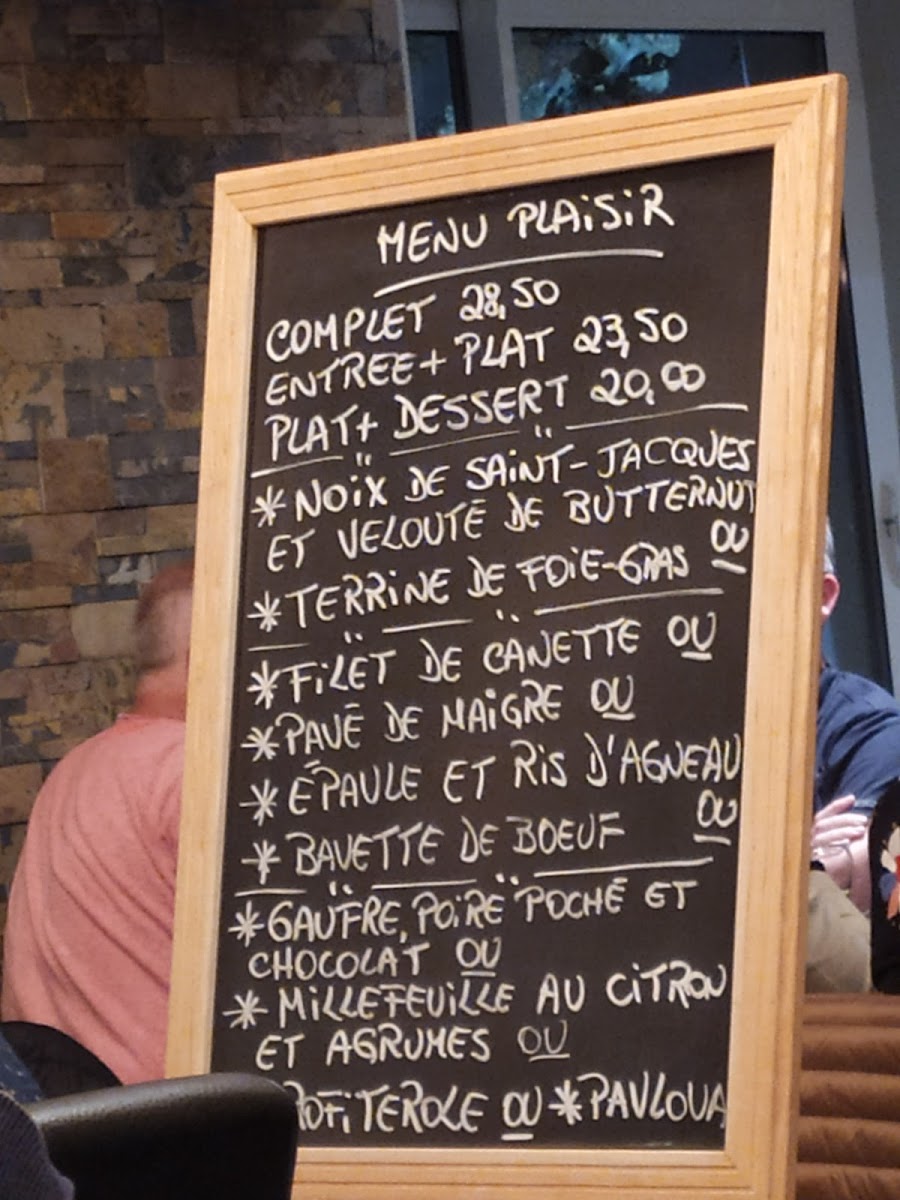 MENU PLAISIR
COMPLET 28,50
ENTREE + PLAT 23,50
PLAT + DESSERT 20,00
* NOIX DE SAINT-JACQUES
ET VELOUTÉ DE BUTTERNUT
OU
* TERRINE DE FOIE-GRAS
* FILET DE CANETTE OU
* PAVÉ DE MAIGRE OU
* ÉPAULE ET RIS D'AGNEAU
OU
* BAVETTE DE BOEUF
* GAUFRE, POIRE POCHÉ ET
CHOCOLAT OU
* MILLEFEUILLE AU CITRON
ET AGRUMES OU
ROFITEROLE OU * PAVLOVA